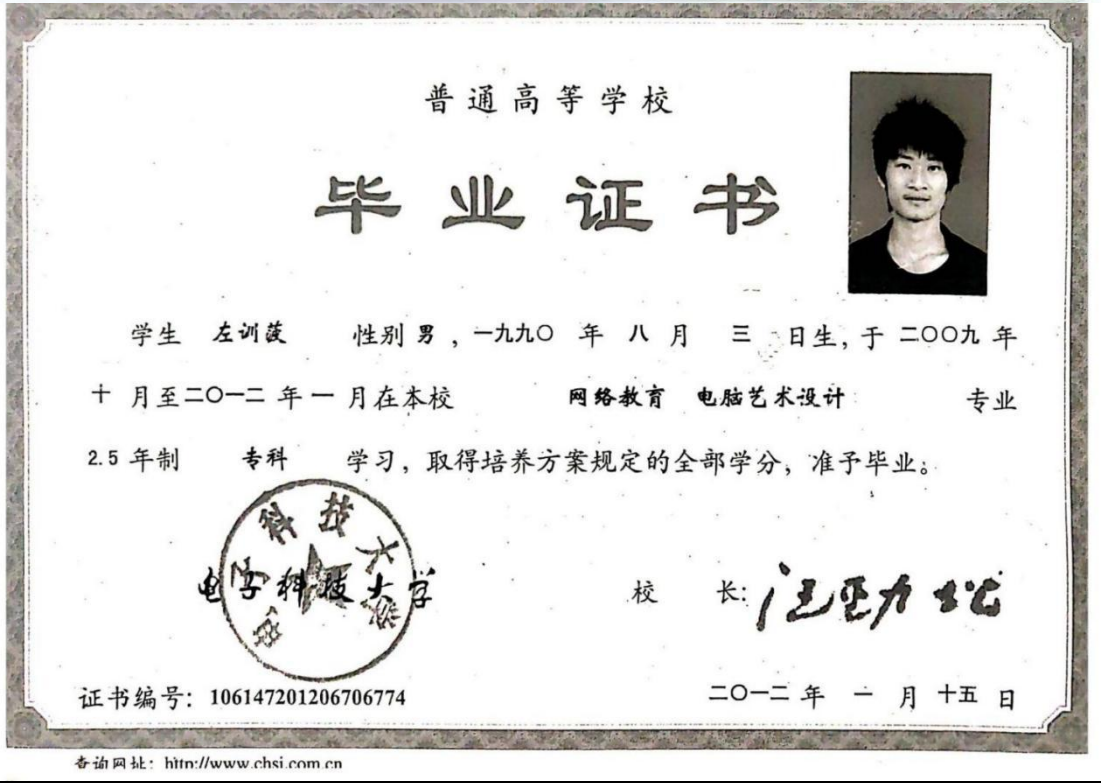 普通高等学校
毕业证书
学生 左训菠 性别 男 ，一九九〇 年 八 月 三 日生，于 二〇〇九 年
十 月至二〇一二 年 一 月在本校 网络教育 电脑艺术设计 专业
2.5 年制 专科 学习，取得培养方案规定的全部学分，准予毕业。
电子科技大学
校 长：汪劲松
证书编号：106147201206706774
二〇一二 年 一 月 十五 日
查询网址：http://www.chsi.com.cn